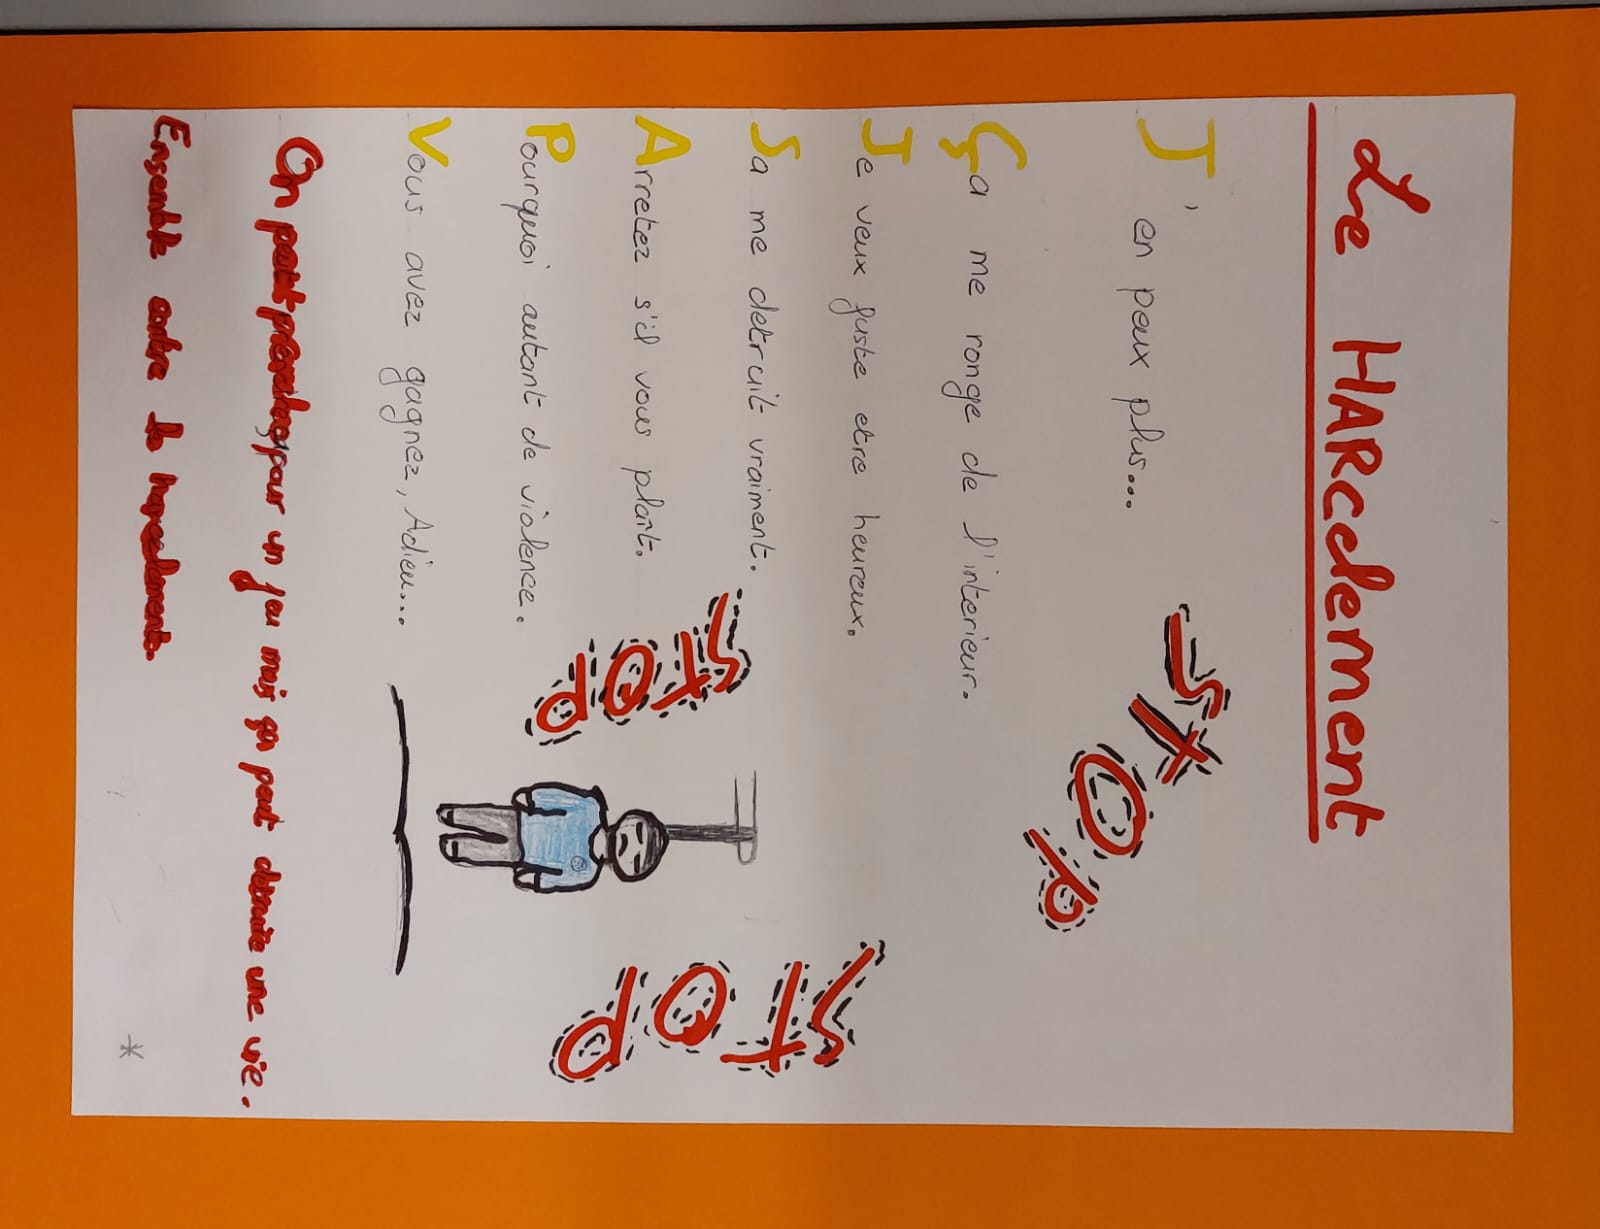 Le HARcelement
J'en peux plus...
Ça me ronge de l'interieur.
Je veux juste etre heureux.
Sa me detruit vraiment.
Arretez s'il vous plaît.
Pourquoi autant de violence.
Vous avez gagnez, Adieu...
STOP
STOP
STOP
On peut prendre ça pour un jeu mais ça peut detruire une vie.
Ensemble contre le harcelement.
*